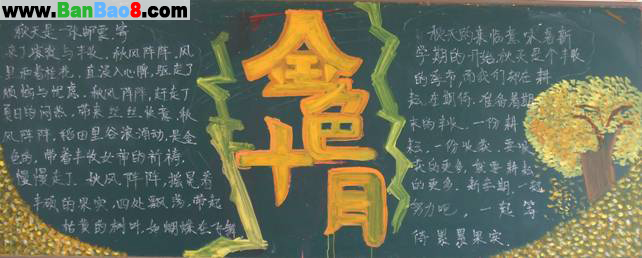 www.BanBao8.com
金色十月
秋天是一张邮票,寄
来了凉爽与丰收。秋风阵阵,风
里承着桂花,直浸入心脾,驱走了
烦恼与忧虑。秋风阵阵,赶走了
夏日的闷热,带来丝丝快意。秋
风阵阵,稻田里谷浪涌动,是金
色的,带着丰收女神的祈祷,
慢慢走了。秋风阵阵,摇晃着
丰硕的果实,四处飘荡,带起
枯黄的树叶,如蝴蝶在飞舞
秋天的来临意味着新
学期的开始,秋天是个丰收
的季节,而我们却在耕
耘,在期待,准备着期
末的丰收。一份耕
耘,一份收获,要收
获的更多,就要耕耘
的更多。新学期,一起
努力吧,一起等
待累累果实。